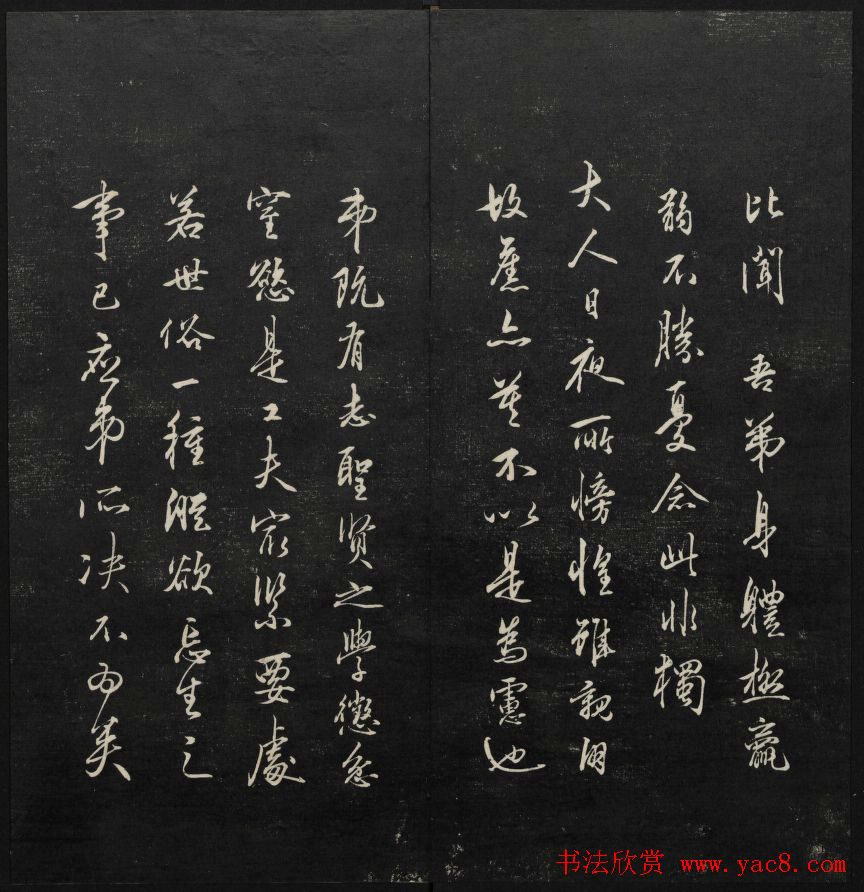 比聞 吾弟身體極羸
弱不勝憂念此非獨
大人日夜所惶雖親朋
故舊亦莫不以是為慮也
弟既有志聖賢之學懲忿
窒慾是工夫最緊要處
若世俗一種縱欲忘生之
事已應弟所決不為矣
书法欣赏 www.yac8.com